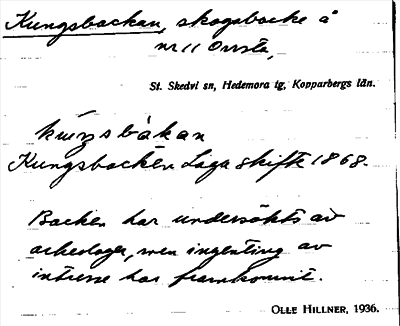 Kungsbackan, skogsbacke å
nr 11 Orrsta,
St. Skedvi sn, Hedemora tg, Kopparbergs län.
kuŋsbakan
Kungsbacken Laga skifte 1868.
Backen har undersökts av
arkeologer, men ingenting av
intresse har framkommit.
OLLE HILLNER, 1936.